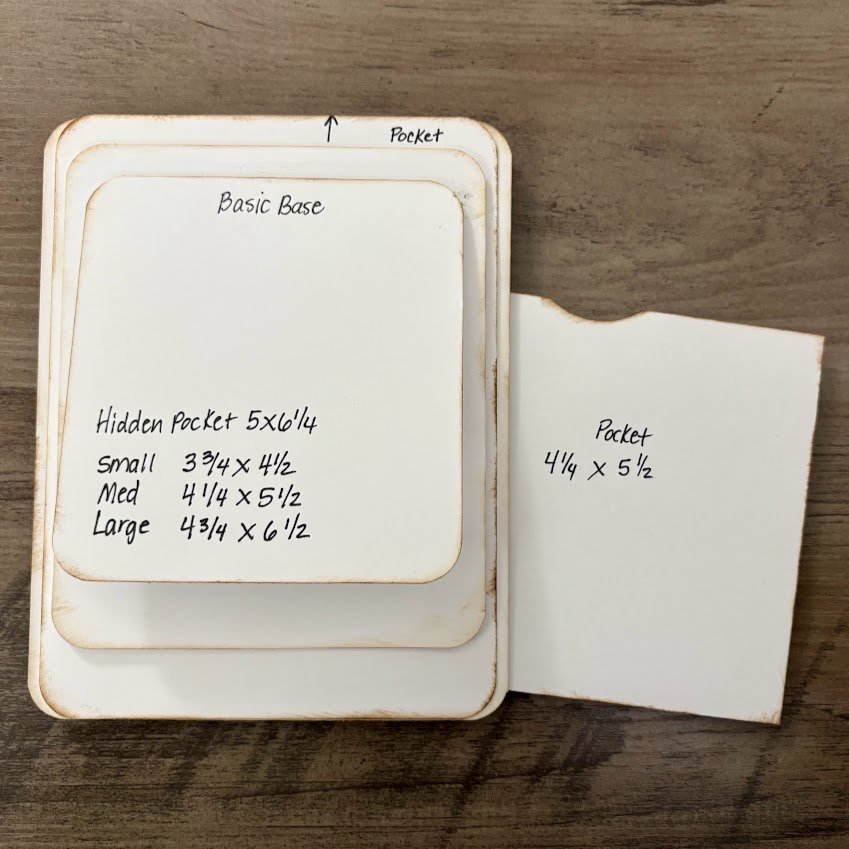 ↑ Pocket
Basic Base
Hidden Pocket 5x6 1/4
Small 3 3/4 x 4 1/2
Med 4 1/4 x 5 1/2
Large 4 3/4 x 6 1/2
Pocket
4 1/4 x 5 1/2